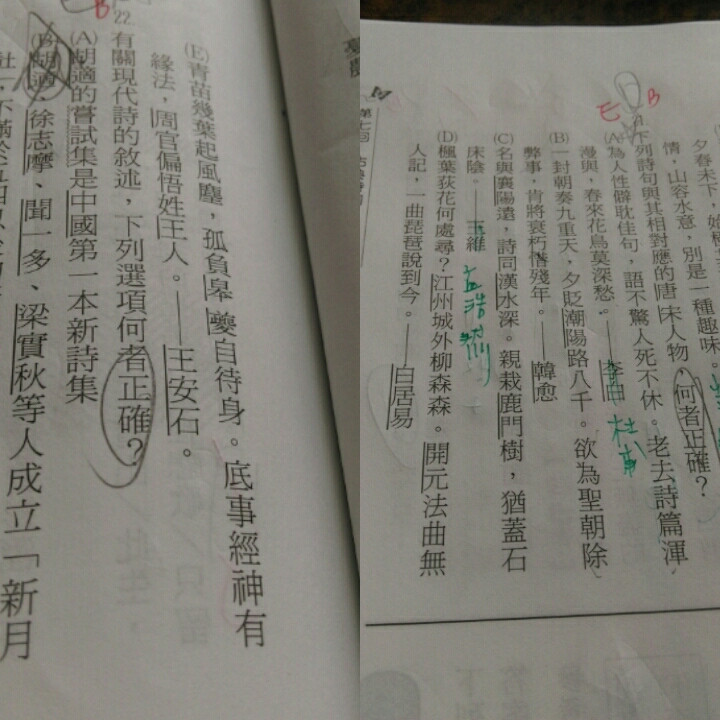 夕春未下
情，山容水意，別是一種趣味。
B
E
下列詩句與其相對應的唐宋人物，何者正確？
(A)為人性僻耽佳句，語不驚人死不休。老去詩篇渾
漫與，春來花鳥莫深愁。——李白 杜甫
(B)一封朝奏九重天，夕貶潮陽路八千。欲為聖朝除
弊事，肯將衰朽惜殘年。——韓愈
(C)名與襄陽遠，詩同漢水深。親栽鹿門樹，猶蓋石
床陰。——王維 孟浩然
(D)楓葉荻花何處尋？江州城外柳森森。開元法曲無
人記，一曲琵琶說到今。——白居易
(E)青苗幾葉起風塵，孤負皋夔自待身。底事經神有
緣法，周官偏悟姓王人。——王安石。
B
22.
有關現代詩的敘述，下列選項何者正確？
(A)胡適的嘗試集是中國第一本新詩集
(B)胡適、徐志摩、聞一多、梁實秋等人成立「新月